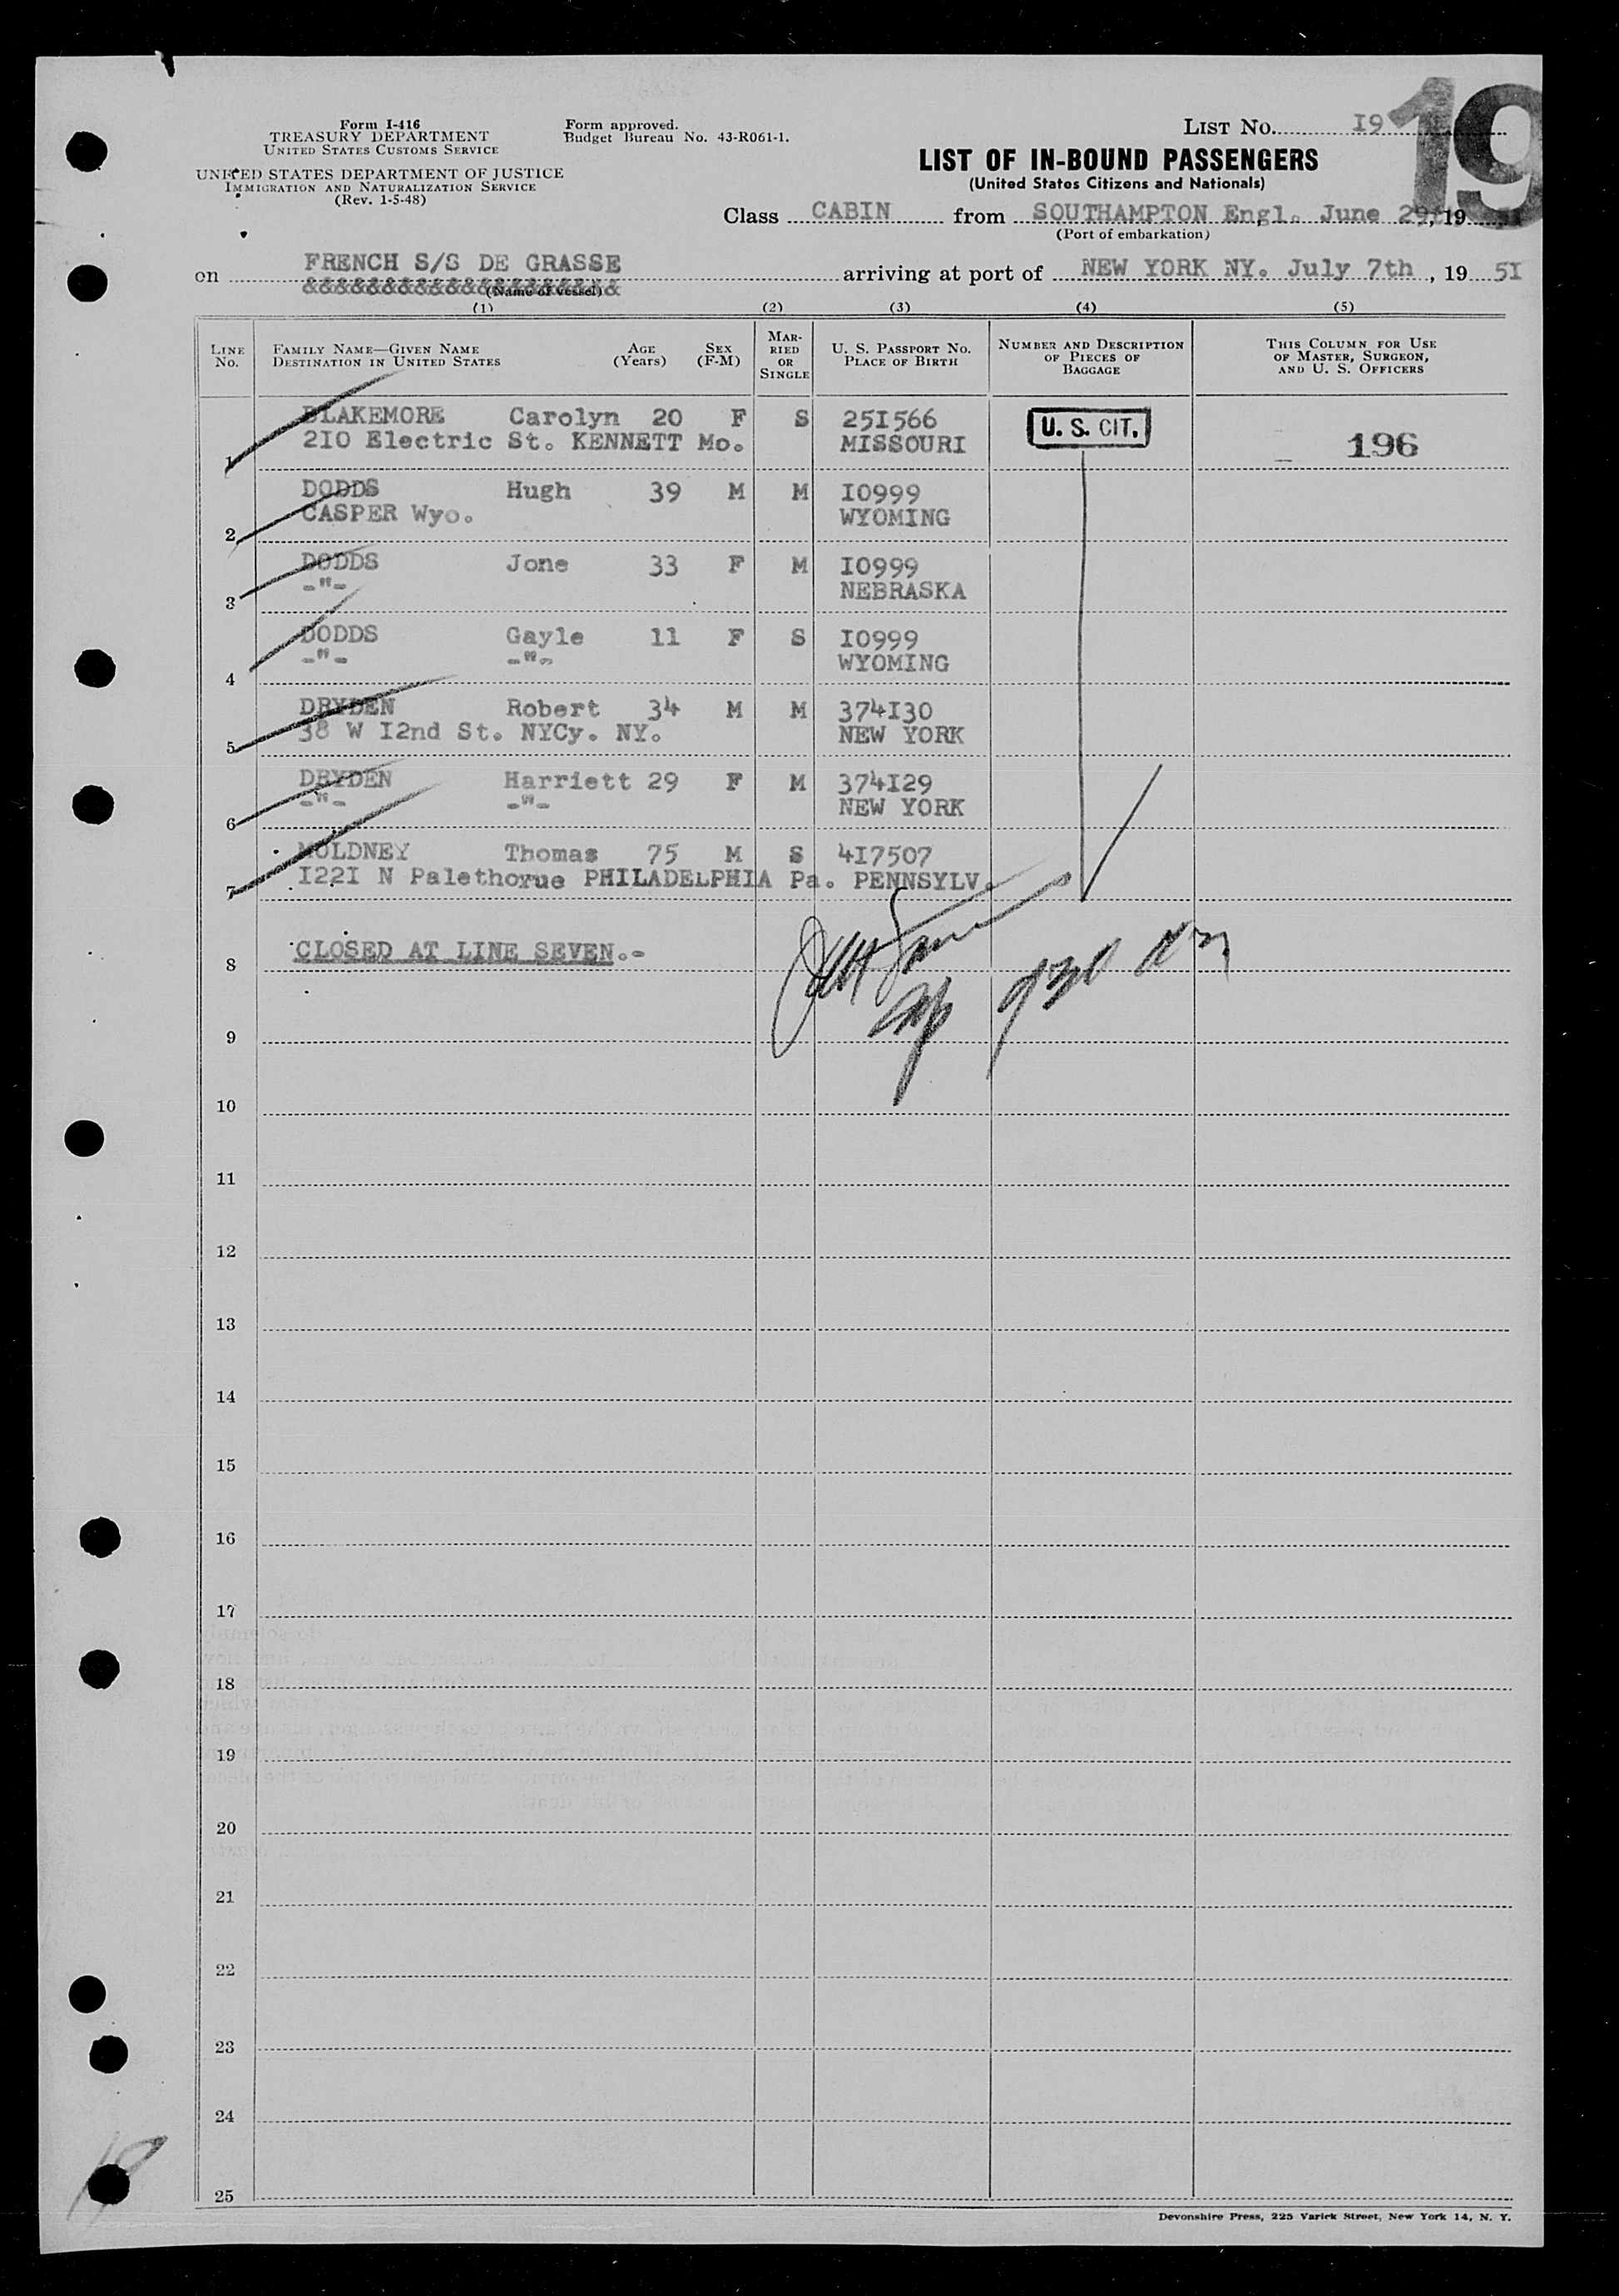 Form I-416
TREASURY DEPARTMENT
UNITED STATES CUSTOMS SERVICE
UNITED STATES DEPARTMENT OF JUSTICE
IMMIGRATION AND NATURALIZATION SERVICE
(Rev. 1-5-48)
Form approved.
Budget Bureau No. 43-R061-1.
LIST NO. I9
19
LIST OF IN-BOUND PASSENGERS
(United States Citizens and Nationals)
Class CABIN from SOUTHAMPTON Engl. June 29, 19
(Port of embarkation)
on FRENCH S/S DE GRASSE arriving at port of NEW YORK NY. July 7th, 19 5I
&&&&&&&&&&&&&&&&&&&&
(Name of vessel)
(1) (2) (3) (4) (5)
LINE No. FAMILY NAME—GIVEN NAME DESTINATION IN UNITED STATES AGE (Years) SEX (F-M) MARRIED OR SINGLE U. S. PASSPORT NO. PLACE OF BIRTH NUMBER AND DESCRIPTION OF PIECES OF BAGGAGE THIS COLUMN FOR USE OF MASTER, SURGEON, AND U. S. OFFICERS
BLAKEMORE Carolyn 20 F S 25I566 U. S. CIT.
1 2I0 Electric St. KENNETT Mo. MISSOURI 196
DODDS Hugh 39 M M I0999
2 CASPER Wyo. WYOMING
DODDS Jone 33 F M I0999
3 -"- NEBRASKA
DODDS Gayle 11 F S I0999
4 -"- -"- WYOMING
DRYDEN Robert 34 M M 374I30
5 38 W I2nd St. NYCy. NY. NEW YORK
DRYDEN Harriett 29 F M 374I29
6 -"- -"- NEW YORK
MULDNEY Thomas 75 M S 4I7507
7 I22I N Palethorue PHILADELPHIA Pa. PENNSYLV.
8 CLOSED AT LINE SEVEN.-
9
10
11
12
13
14
15
16
17
18
19
20
21
22
23
24
25
19
Devonshire Press, 225 Varick Street, New York 14, N. Y.